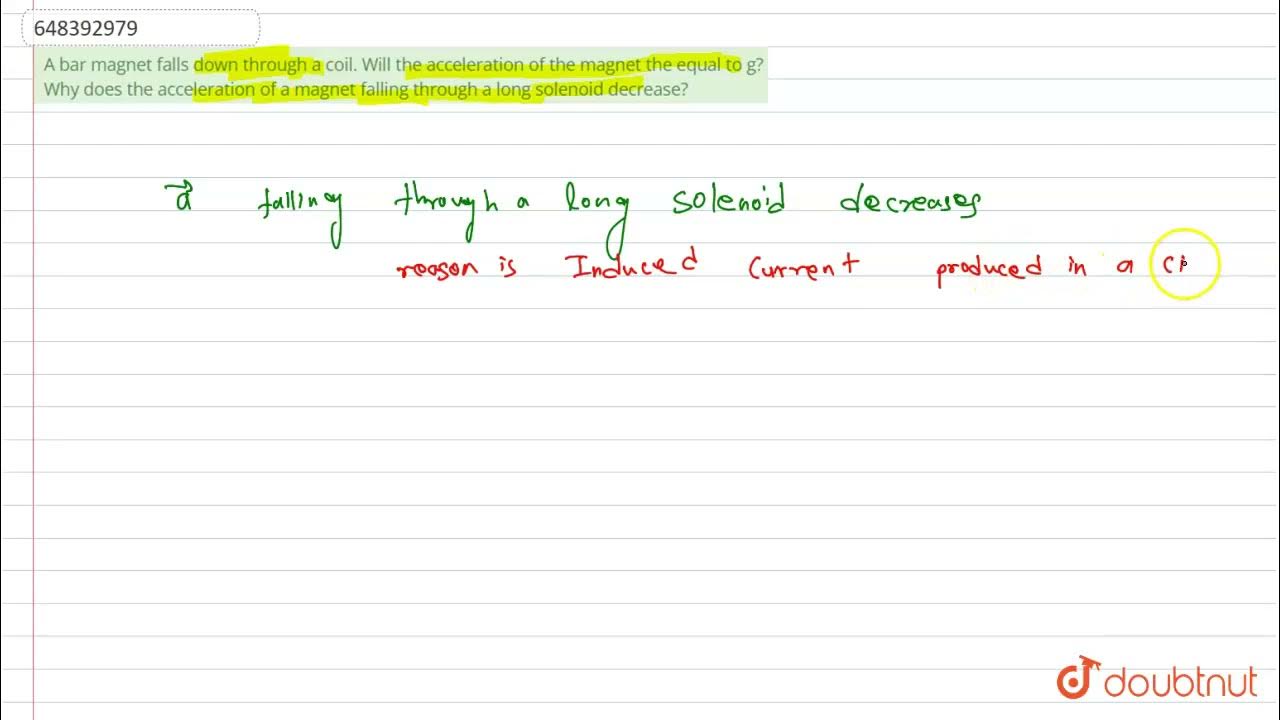 648392979
A bar magnet falls down through a coil. Will the acceleration of the magnet the equal to g?
Why does the acceleration of a magnet falling through a long solenoid decrease?
a falling through a long solenoid decreases
reason is Induced current produced in a ci
doubtnut